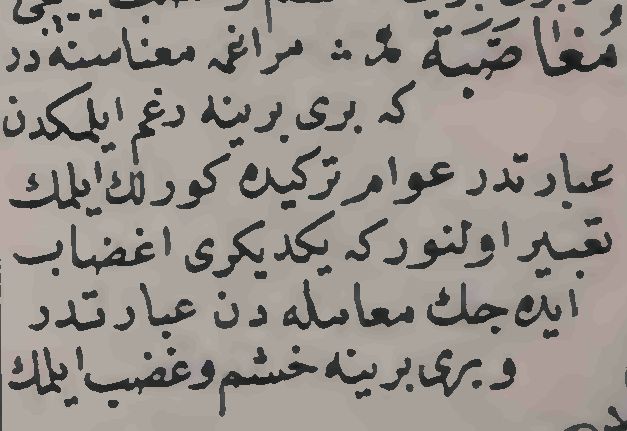 مُغَاضَبَة م ث مراغمه معناسنه در
که بری برینه رغم ایلمکدن
عبارتدر عوام ترکیده کورلك ایلمك
تعبیر اولنور که یکدیکری اغضاب
ایده جك معامله دن عبارتدر
و بری برینه خشم و غضب ایلمك